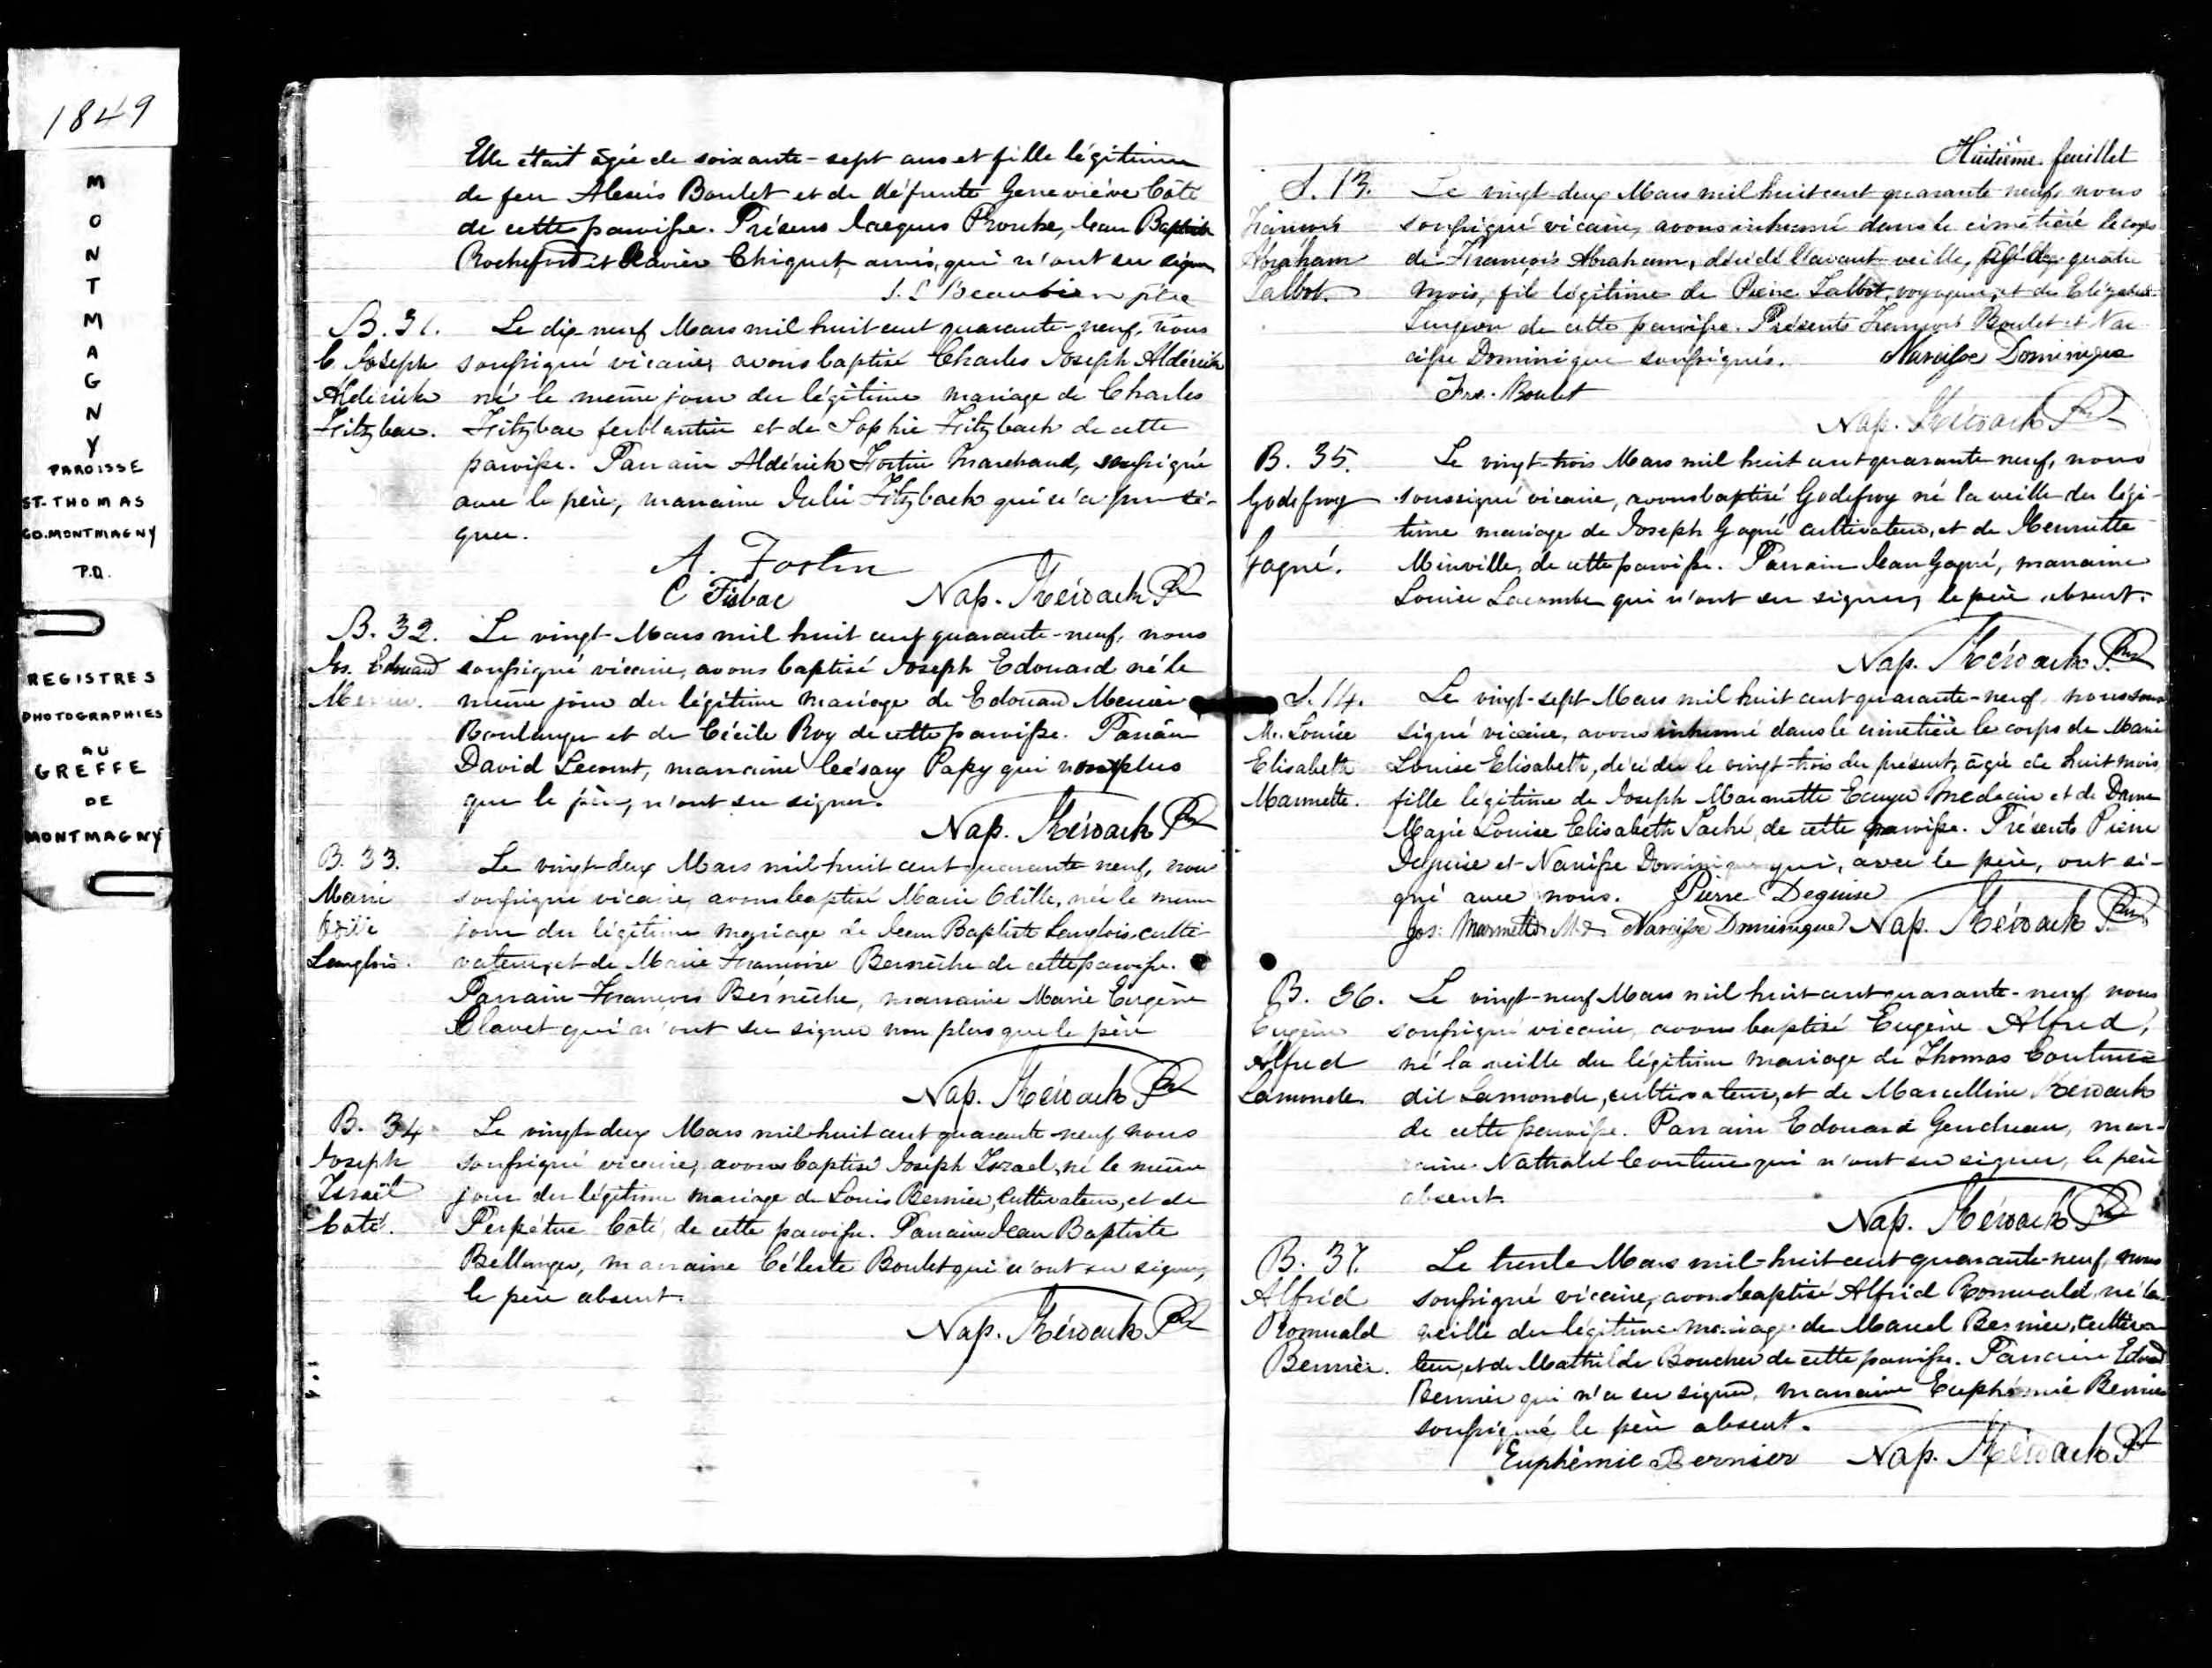 1849
MONTMAGNY
PAROISSE
ST-THOMAS
CO. MONTMAGNY
P.Q.
REGISTRES
PHOTOGRAPHIES
AU
GREFFE
DE
MONTMAGNY
Elle était âgée de soixante-sept ans et fille légitime
de feu Alexis Boulet et de défunte Geneviève Côté
de cette paroisse. Présens Jacques Proulx, Jean Baptiste
Rochefort et Xavier Chiquet amis, qui n'ont su signer
J. L. Beaubien ptre
B. 31.
C Joseph
Aldérick
Fitzbac.
Le dix-neuf Mars mil huit cent quarante-neuf, nous
soussigné vicaire, avons baptisé Charles Joseph Aldérick
né le même jour du légitime mariage de Charles
Fitzbac ferblantier et de Sophie Fitzbach de cette
paroisse. Parrain Aldérick Fortin Marchand, soussigné
avec le père, marraine Julie Fitzbach qui n'a pu si-
gner.
A. Fortin
C Fisbac Nap. Kéroack Ptre
B. 32.
Jos. Edouard
Mercier.
Le vingt Mars mil huit cent quarante-neuf, nous
soussigné vicaire, avons baptisé Joseph Edouard né le
même jour du légitime mariage de Edouard Mercier
Boulanger et de Cécile Roy de cette paroisse. Parrain
David Lecomt, marraine Césary Papy qui non plus
que le père, n'ont su signer.
Nap. Kéroack Ptre
B. 33.
Marie
Odile
Langlois.
Le vingt-deux Mars mil huit cent quarante neuf, nous
soussigné vicaire, avons baptisé Marie Odille, née le même
jour du légitime mariage de Jean Baptiste Langlois culti-
vateur, et de Marie Françoise Bernèche de cette paroisse.
Parrain François Bernèche, marraine Marie Eugène
Blavet qui n'ont su signer non plus que le père
Nap. Kéroack Ptre
B. 34
Joseph
Israël
Coté.
Le vingt-deux Mars mil huit cent quarante neuf nous
soussigné vicaire, avons baptisé Joseph Israel, né le même
jour du légitime mariage de Louis Bernier, Cultivateur, et de
Perpétue Côté, de cette paroisse. Parrain Jean Baptiste
Bellanger, marraine Céleste Boulet qui n'ont su signer,
le père absent.
Nap. Kéroack Ptre
Huitième feuillet
S. 13.
François
Abraham
Talbot.
Le vingt-deux Mars mil huit cent quarante neuf, nous
soussigné vicaire, avons inhumé dans le cimetière le corps
de François Abraham, décédé l'avant-veille, âgé de quatre
mois, fils légitime de Pierre Talbot, voyageur, et de Elizabeth
Turgeon de cette paroisse. Présents François Boulet et Nar-
cisse Dominique soussignés. Narcisse Dominique
Frs. Boulet
Nap. Kéroack Ptre
B. 35.
Godefroy
Gagné.
Le vingt-trois Mars mil huit cent quarante neuf, nous
soussigné vicaire, avons baptisé Godefroy né la veille du légi-
time mariage de Joseph Gagné cultivateur, et de Henriette
Minville, de cette paroisse. Parrain Jean Gagné, marraine
Louise Lacombe qui n'ont su signer, le père absent.
Nap. Kéroack Ptre
S. 14.
M. Louise
Elisabeth
Marmette.
Le vingt-sept Mars mil huit cent quarante-neuf, nous sous-
signé vicaire, avons inhumé dans le cimetière le corps de Marie
Louise Elisabeth, décédée le vingt-trois du présent, âgée de huit mois,
fille légitime de Joseph Marmette Ecuyer Medecin et de Dame
Marie Louise Elisabeth Taché, de cette paroisse. Présents Pierre
Deguise et Narcisse Dominique qui, avec le père, ont si-
gné avec nous. Pierre Deguise
Jos. Marmette M.D. Narcisse Dominique Nap. Kéroack Ptre
B. 36.
Eugène
Alfred
Lamonde
Le vingt-neuf Mars mil huit cent quarante-neuf nous
soussigné vicaire, avons baptisé Eugène Alfred,
né la veille du légitime mariage de Thomas Couture
dit Lamonde, cultivateur, et de Marcelline Kéroack
de cette paroisse. Parrain Edouard Gendreau, mar-
raine Nathalie Couture qui n'ont su signer, le père
absent.
Nap. Kéroack Ptre
B. 37.
Alfred
Romuald
Bernier.
Le trente Mars mil-huit cent quarante-neuf, nous
soussigné vicaire, avons baptisé Alfrid Romuald, né la
veille du légitime mariage de Marcel Bernier, cultiva-
teur, et de Mathilde Boucher de cette paroisse. Parrain Edouard
Bernier qui n'a su signer, marraine Euphémie Bernier
soussignée, le père absent.
Euphémie Bernier Nap. Kéroack Ptre